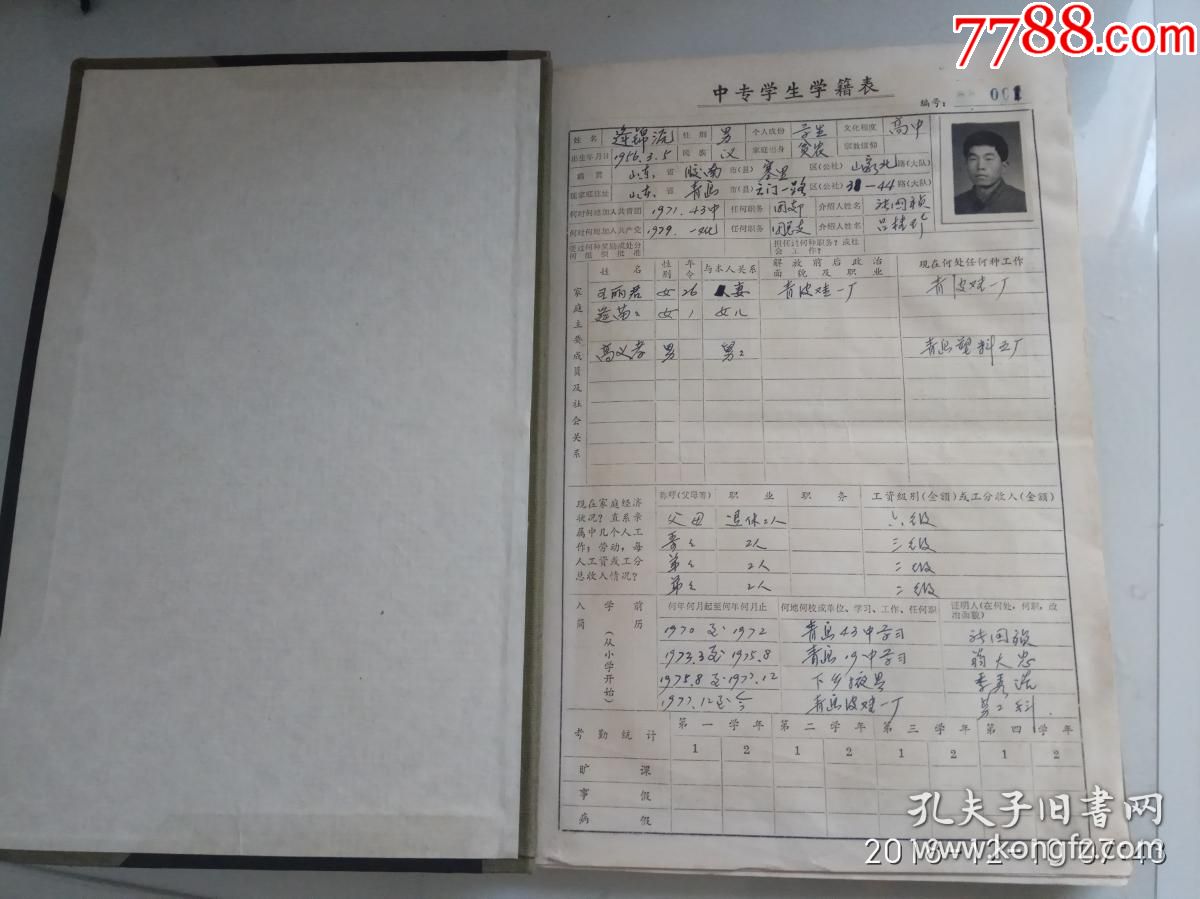 7788.com
中专学生学籍表
编号： 001
姓名 逄锦流 性别 男 个人成份 学生 文化程度 高中
出生年月日 1956.3.5 民族 汉 家庭出身 贫农 宗教信仰
籍贯 山东 省 胶南 市(县) 寨里 区(公社) 路(大队)
现家庭住址 山东 省 青岛 市(县) 云门一路 区(公社) 31-44 路(大队)
何时何地加入共青团 1971.43中 任何职务 团支 介绍人姓名 张国祯
何时何地加入共产党 1979. 任何职务 介绍人姓名 吕桂
受过何种奖励或处分 何组织批准 担任过何种职务？或社会工作？
家庭主要成员及社会关系 姓名 性别 年令 与本人关系 解放前后政治面貌及职业 现在何处任何种工作
王丽君 女 26 妻 青皮娃一厂 青皮娃一厂
逄苗苗 女 1 女儿
高义孝 男 舅舅 青岛塑料五厂
现在家庭经济状况？直系亲属中几个人工作；劳动，每人工资或工分总收入情况？ 称呼(父母等) 职业 职务 工资级别(金额)或工分收入(金额)
父母 退休工人 六级
工人 三级
弟弟 工人 二级
弟弟 工人 二级
入学前简历（从小学开始） 何年何月起至何年何月止 何地何校或单位、学习、工作、任何职 证明人(在何处，何职，政治面貌)
1970至1972 青岛43中学习 张国祯
1973.3至1975.8 青岛19中学习 大忠
1975.8至1977.12 下乡掖县 李秀
1977.12至今 青岛皮娃一厂 劳工科
考勤统计 第一学年 第二学年 第三学年 第四学年
1 2 1 2 1 2 1 2
旷课
事假
病假
孔夫子旧书网
www.kongfz.com